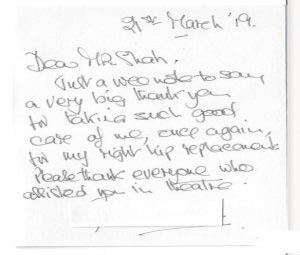 21st March '19.
Dear Mr Shah,
Just a wee note to say
a very big thank you
for taking such good
care of me, once again,
for my right hip replacement
Please thank everyone who
assisted you in theatre.